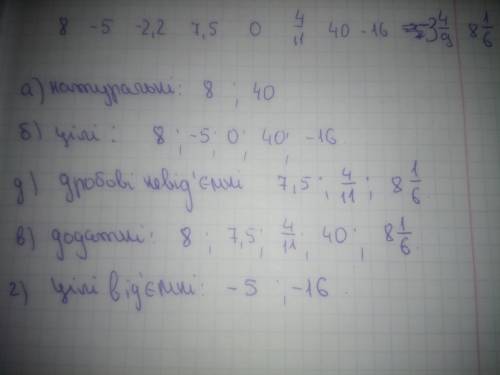 8 -5 -2,2 7,5 0 4/11 40 -16 -3 4/9 8 1/6
а) натуральні: 8 ; 40
б) цілі: 8 ; -5 ; 0 ; 40 ; -16
д) дробові невід'ємні 7,5 ; 4/11 ; 8 1/6
в) додатні: 8 ; 7,5 ; 4/11 ; 40 ; 8 1/6
г) цілі від'ємні: -5 ; -16.